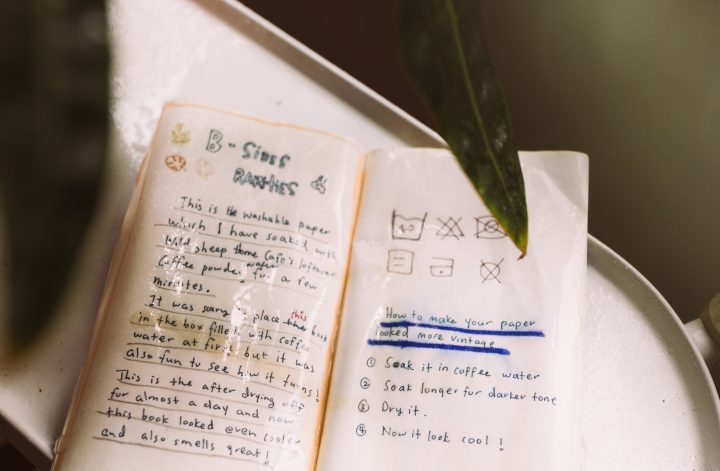 B-Sides
RARITIES 4
This is the washable paper
which I have soaked with
Wild sheep Home Cafe's leftover
Coffee powder water for a few
minutes.
It was scary to place the this book
in the box filled with coffee
water at first but it was
also fun to see how it turns!
This is the after drying off
for almost a day and now
this book looked even cooler
and also smells great!
How to make your paper
looked more vintage
① Soak it in coffee water
② Soak longer for darker tone
③ Dry it.
④ Now it look cool!